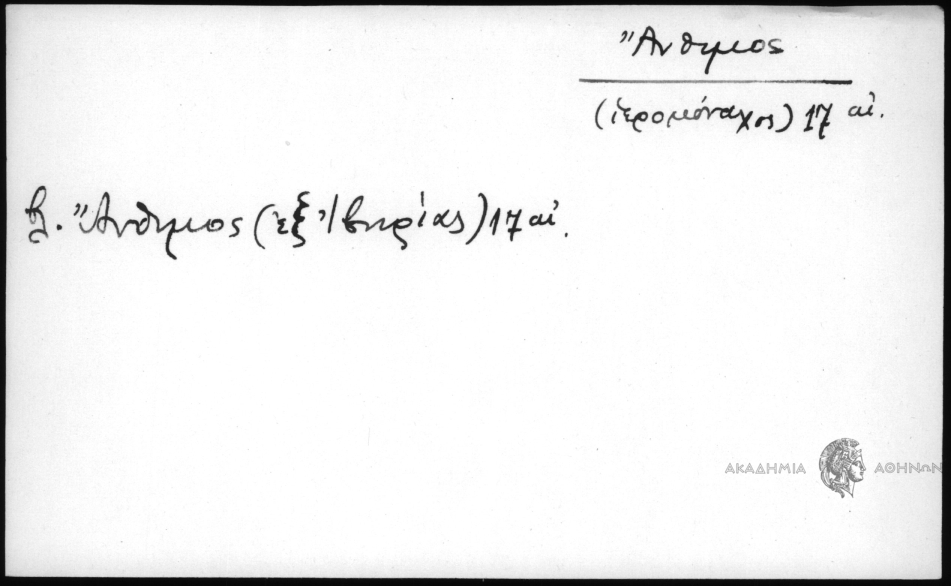 Ἄνθιμος
(ἱερομόναχος) 17 αἰ.
βλ. Ἄνθιμος (ἐξ Ἰβηρίας) 17 αἰ.
ΑΚΑΔΗΜΙΑ ΑΘΗΝΩΝ